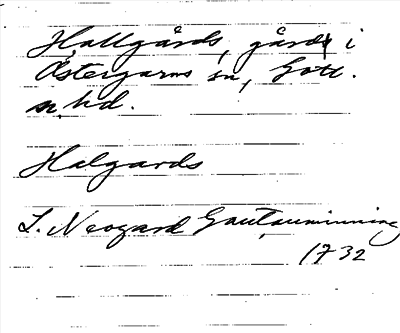 Hallgårds, gård i
Östergarns sn, Gotl.
n. hd.
Halgards
L. Neogard Gautauminning
1732